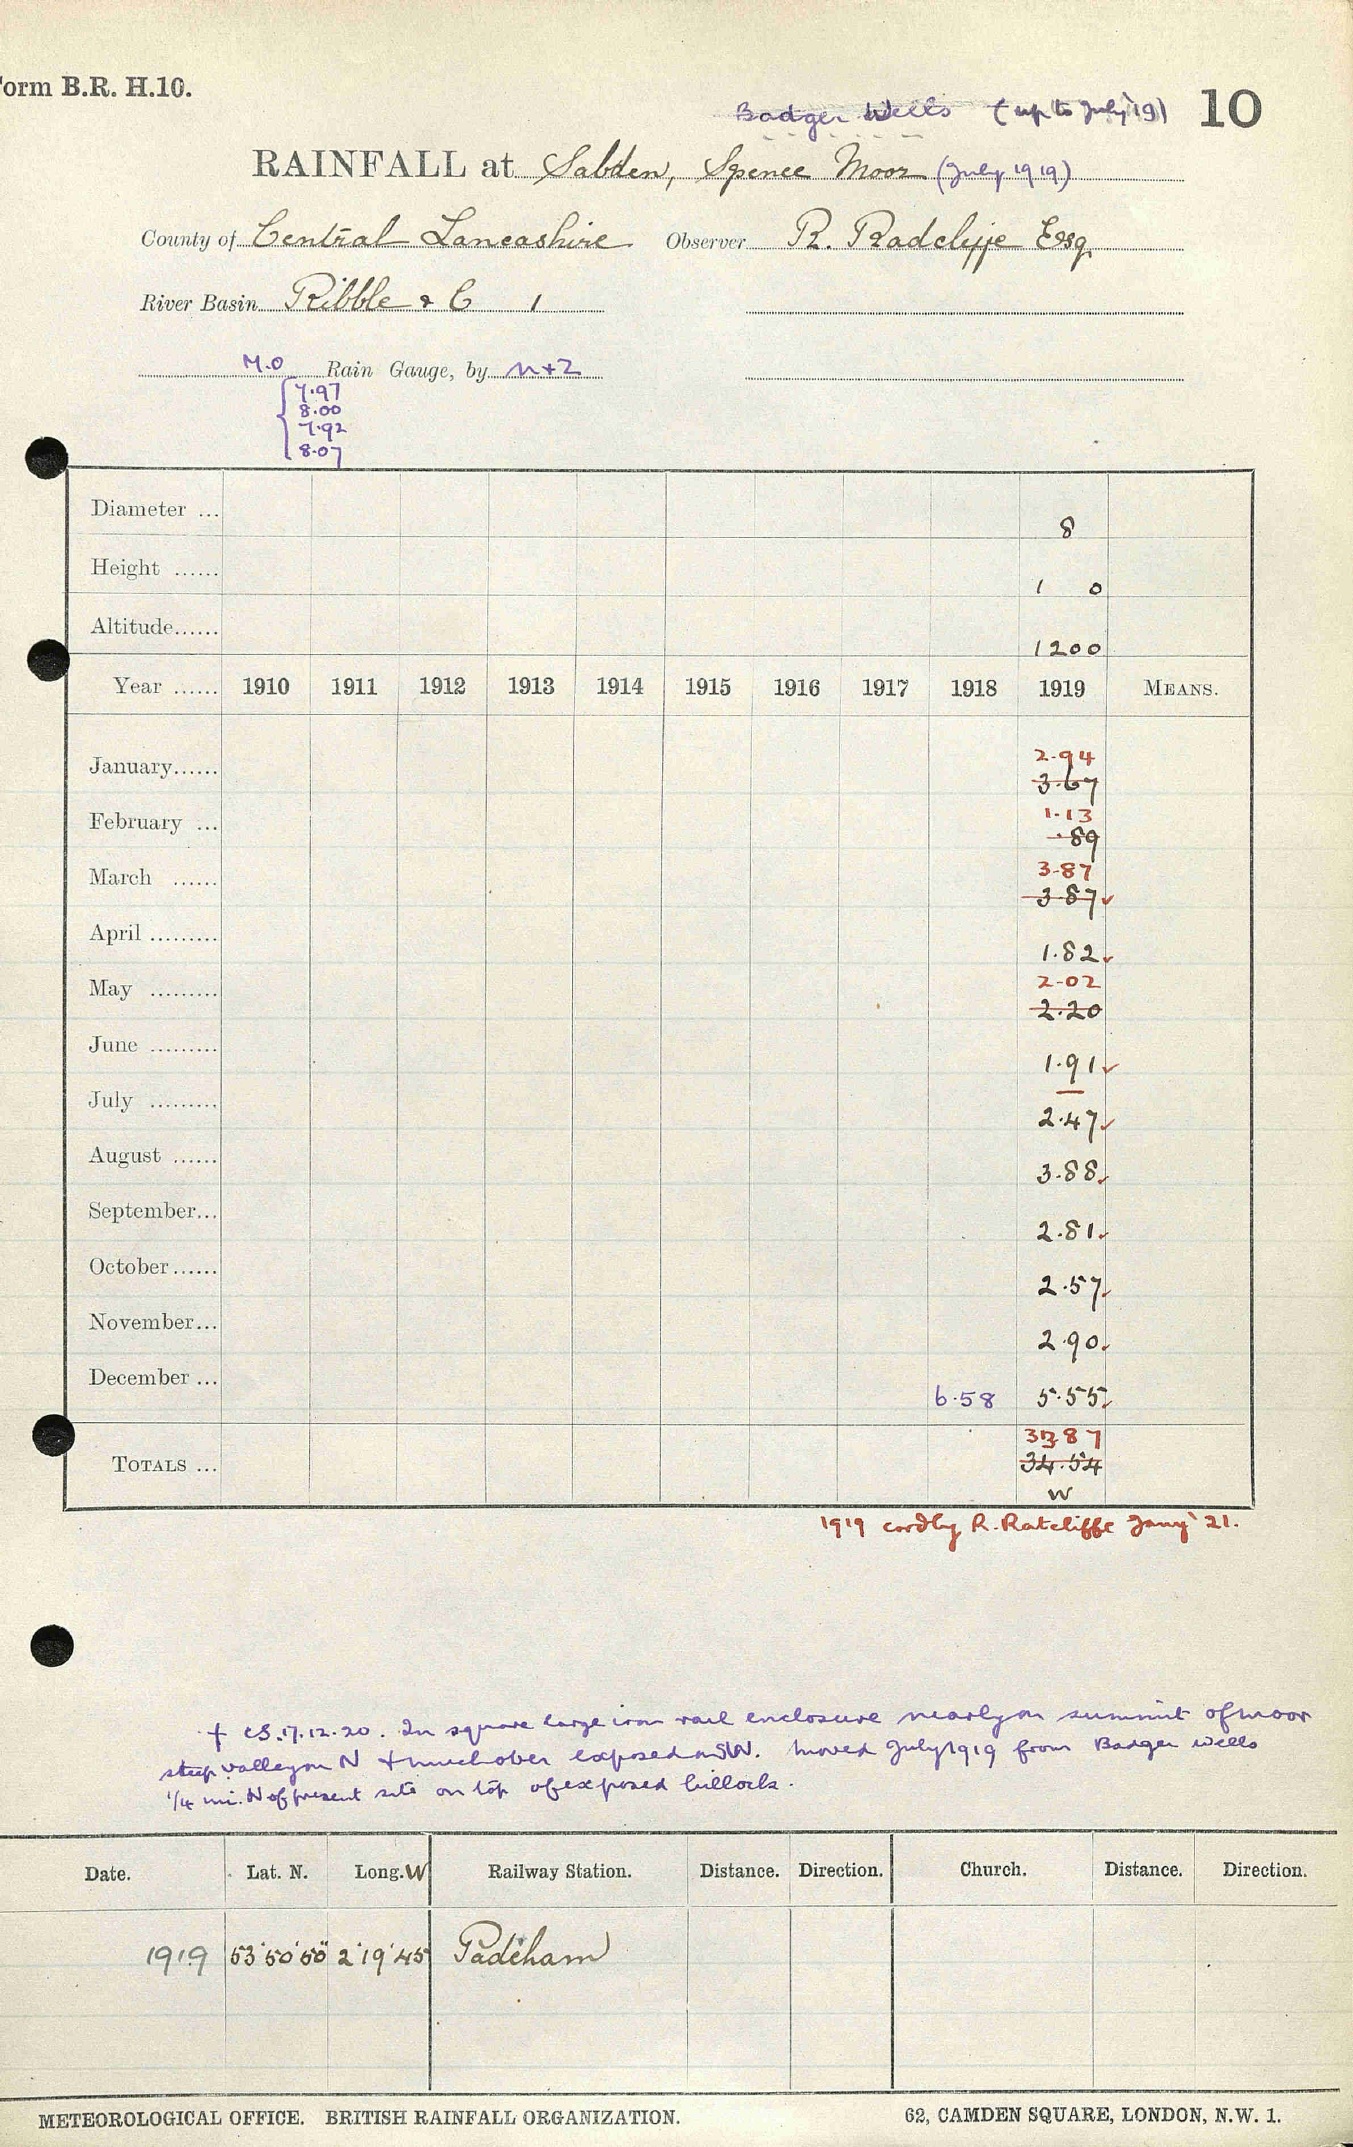 Form B.R. H.10.
Badger Wells (up to July '19) 10
RAINFALL at Sabden, Spence Moor (July 1919)
County of Central Lancashire Observer R. Radcliffe Esq
River Basin Ribble & C 1
M.O Rain Gauge, by N+Z
7.97
8.00
7.92
8.07
Diameter ... 8
Height ...... 1 0
Altitude...... 1200
Year ...... 1910 1911 1912 1913 1914 1915 1916 1917 1918 1919 MEANS.
2.94
January...... 3.67
1.13
February ... .89
3.87
March ...... 3.87
April ......... 1.82
2.02
May ......... 2.20
June ......... 1.91
July ......... 2.47
August ...... 3.88
September... 2.81
October...... 2.57
November... 2.90
December ... 6.58 5.55
33.87
TOTALS ... 34.54
W
1919 cord by R. Ratcliffe Jany '21.
+ CS.17.12.20. In square large iron rail enclosure nearly on summit of moor
steep valley on N & much over exposed on SW. Moved July 1919 from Badger Wells
1/4 mi. N of present site on top of exposed hillock.
Date. Lat. N. Long. W Railway Station. Distance. Direction. Church. Distance. Direction.
1919 53°50'50" 2°19'45 Padiham
METEOROLOGICAL OFFICE. BRITISH RAINFALL ORGANIZATION. 62, CAMDEN SQUARE, LONDON, N.W. 1.